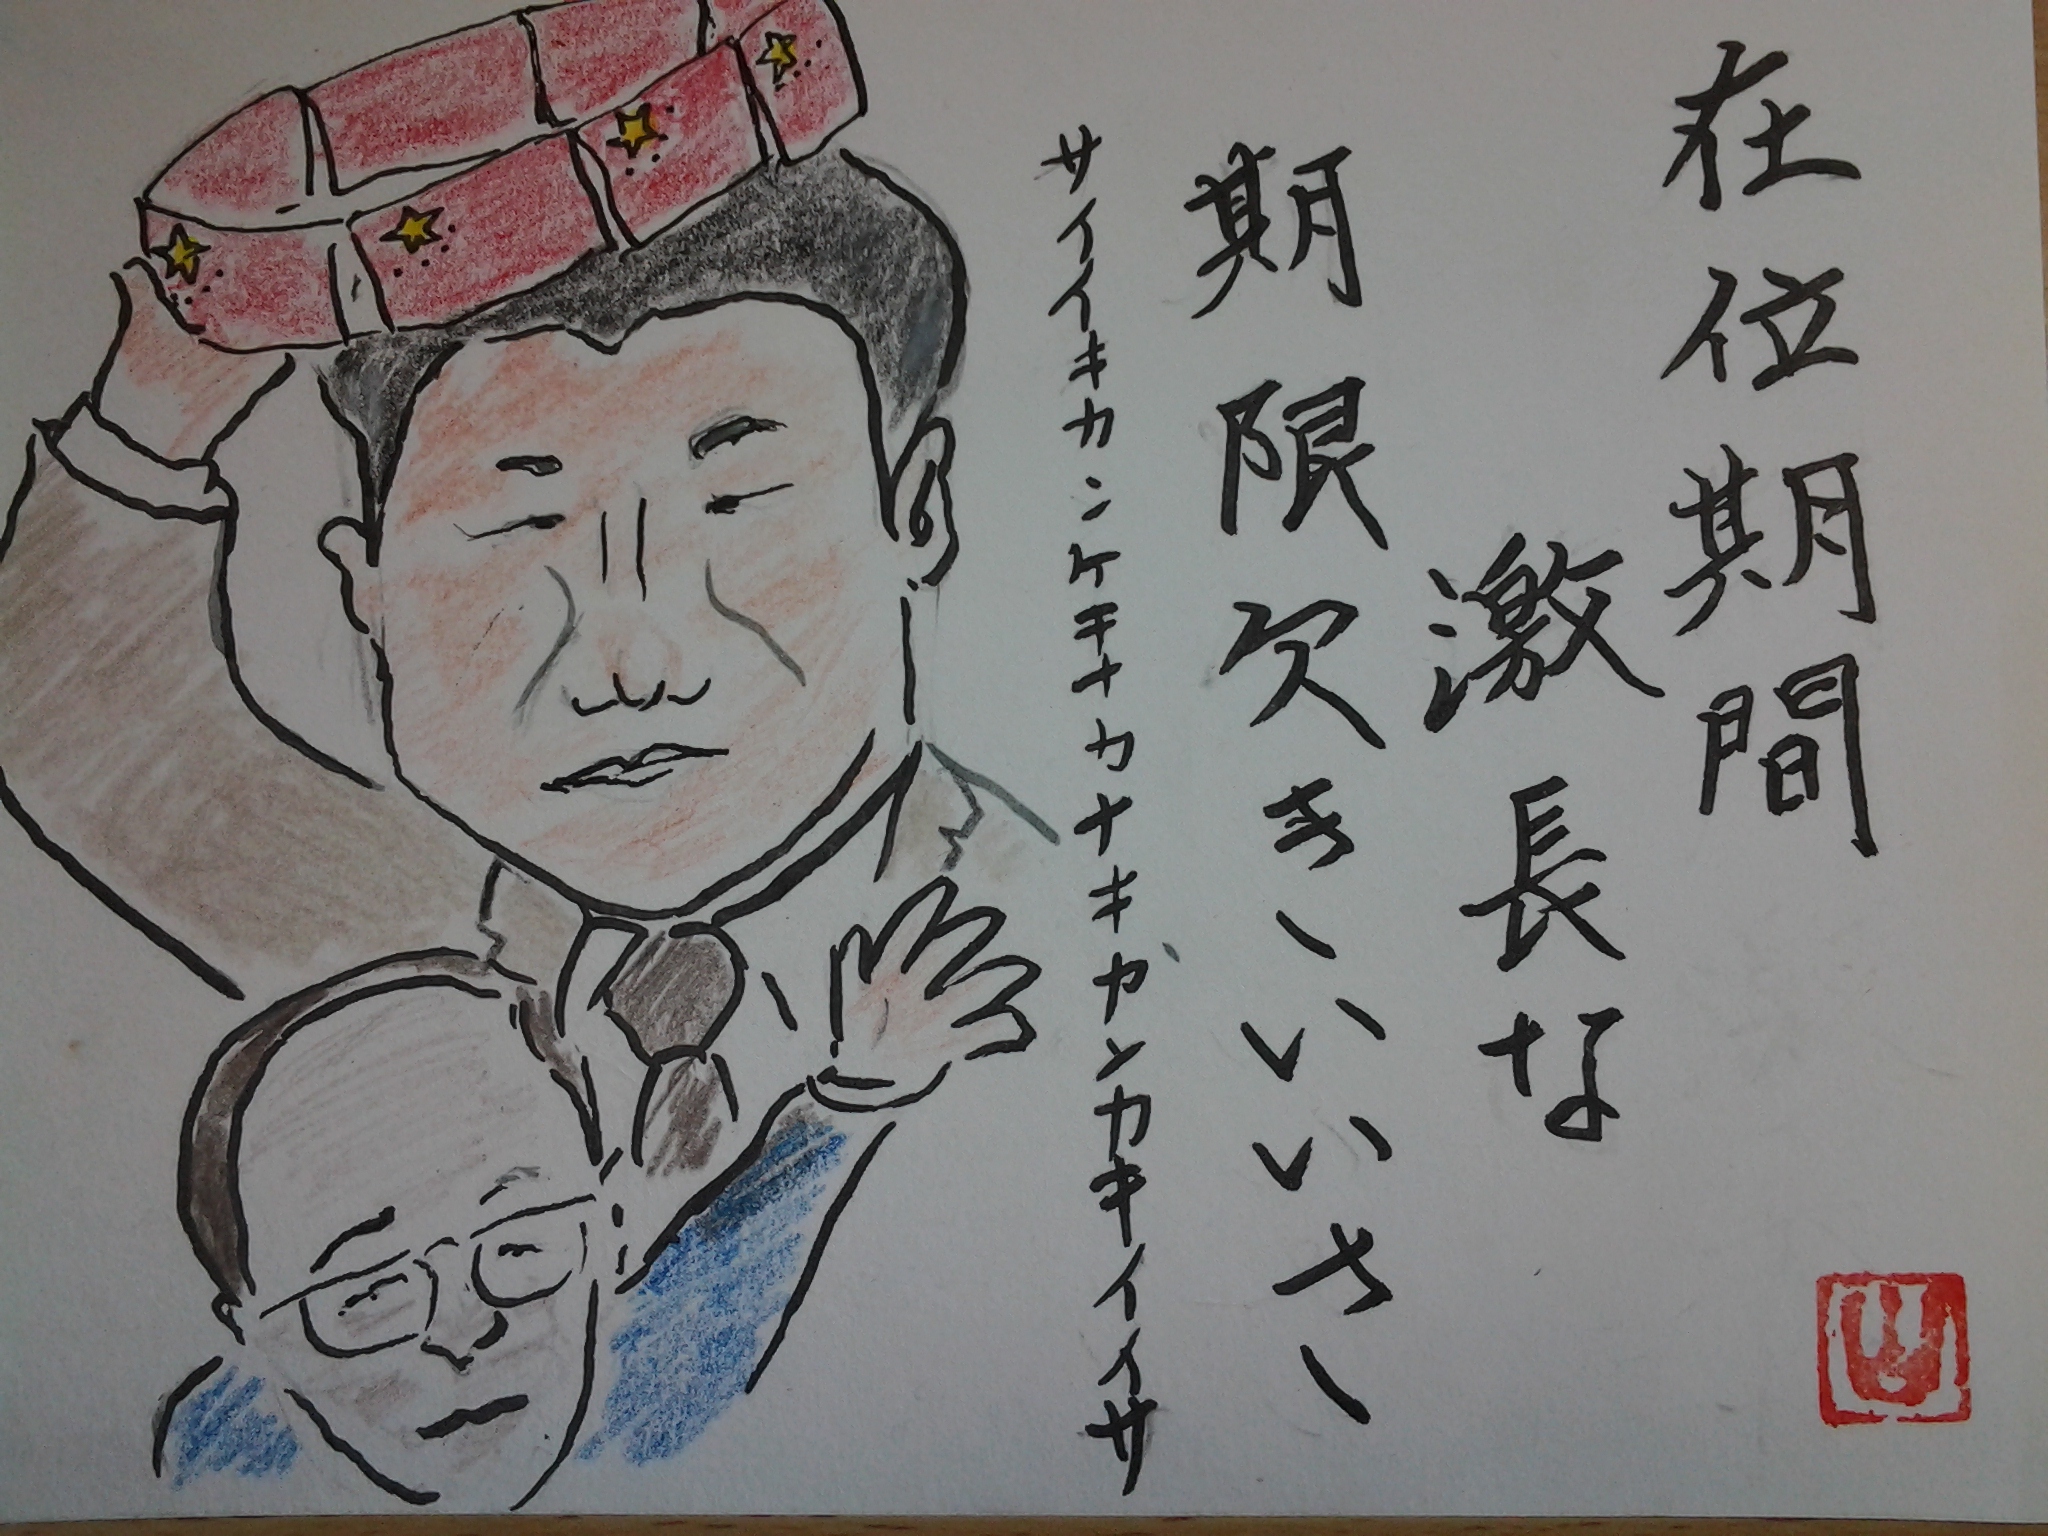 在位期間
激長な
期限欠き、いいさ、
サイイキカンケキナカナキケンカキイイサ